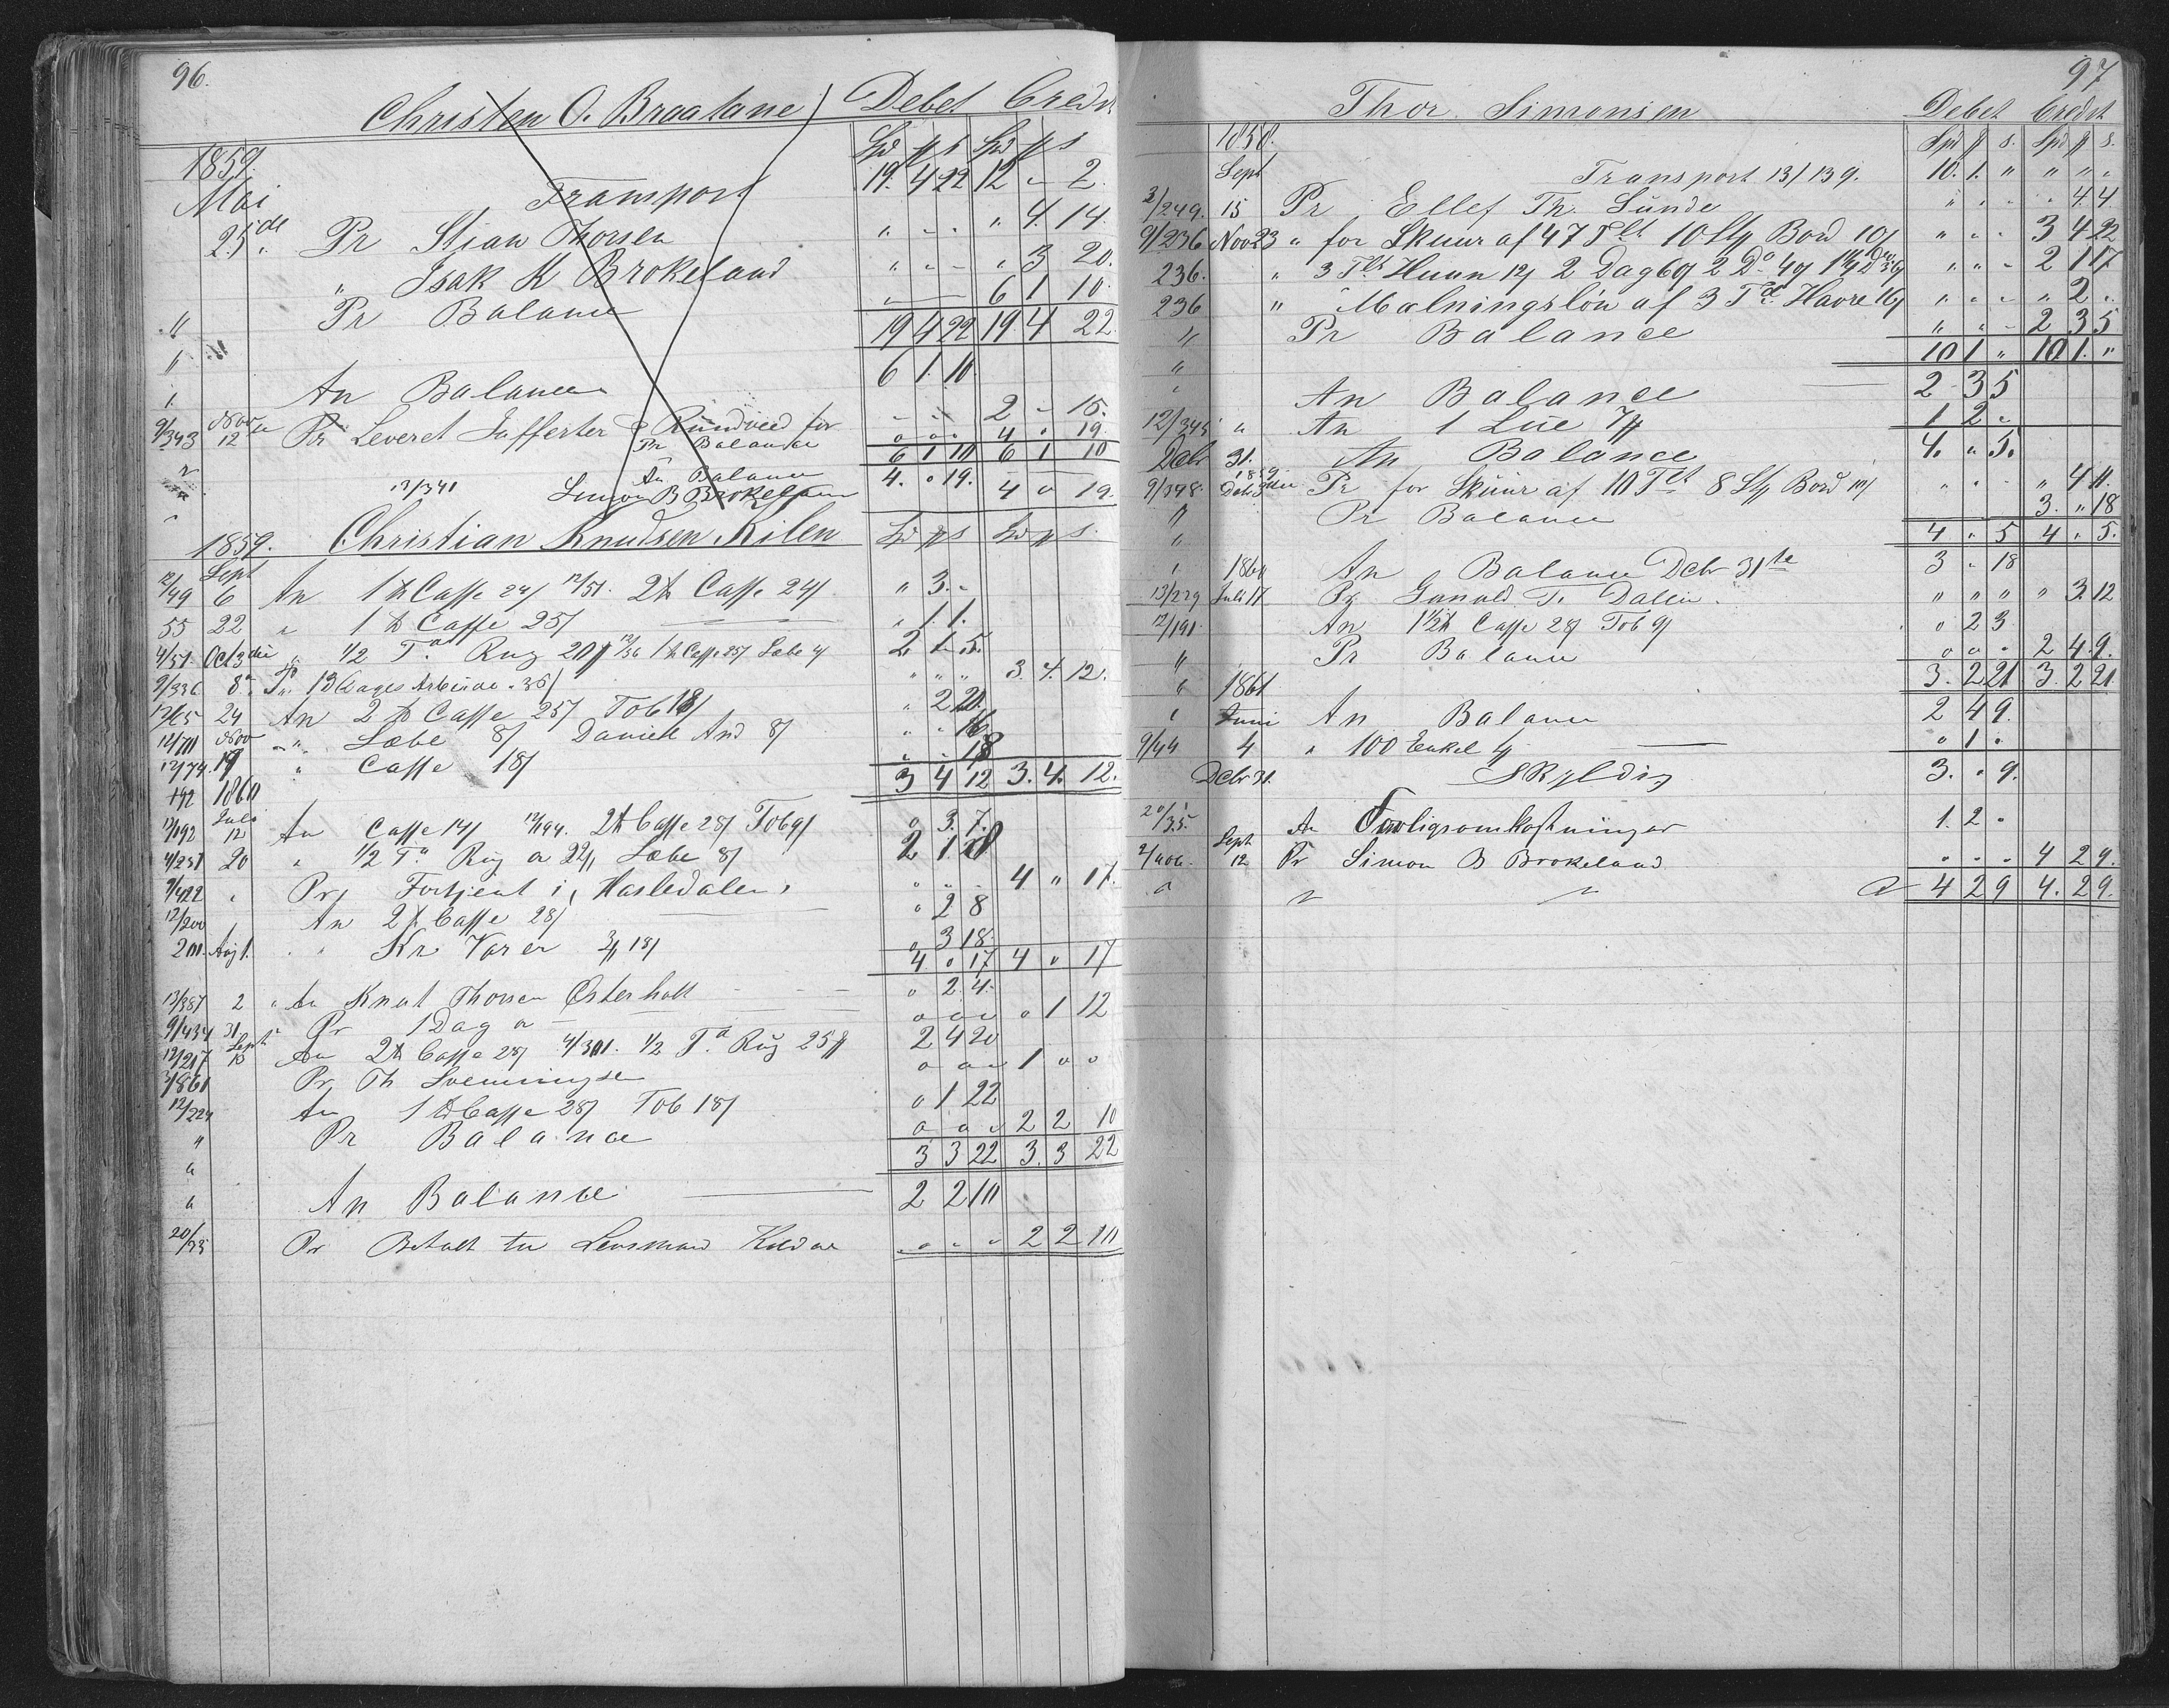 96.
Christen O. Braatane Debet Credit
1859. Spd ß s Spd ß s
Mai Transport 19. 4 22 12 " 2.
25de Pr Stian Thorsen " " " " 4. 14.
" Isak K Brokeland " " " " 3 20.
" Pr Balance " 6 1 10.
" 19 4 22 19. 4 22.
" An Balance 6 1. 10.
9/343 Nov 12 Pr Leveret for " " " 2 " 15.
Pr Balance " " " 4 " 19.
6 1 10 6 1 10
An Balance 4. " 19.
12/341 Simon B Brokeland 4 " 19.
1859. Christian Knudsen Kilen Spd ß s Spd ß s
Sept
12/49 6 An 1 ℔ Caffe 24/ 12/51. 2 ℔ Caffe 24/ " 3. "
55 22 " 1 ℔ Caffe 25/ " 1 1.
4/51. Oct 3die " 1/2 Td Rug 20ß 12/56 1 ℔ Caffe 25/ Sæbe 4/ 2. 1. 5.
9/336 8de Pr. 13 Dages Arbeide 36/ " " " 3. 4. 12.
12/65 24 An 2 ℔ Caffe 25/ Tob 18/ " 2 20.
12/71 Nov " Sæbe 8/ Daniel And 8/ " " 16
12/74. 19 " Caffe 18/ " " 18
192 1860 3 4 12 3. 4. 12.
Juli
12/192 12 An Caffe 14/ 12/194. 2 ℔ Caffe 28/ Tob 9/ " 3. 7.
4/251 20 " 1/2 Td Rug a 22ß Sæbe 8/ 2 1
9/422 " Pr Fortjent i Hasledalen " " " 4 " 17.
12/200 " An 2 ℔ Caffe 28/ " 2 8
201. Aug 1. " Kr Varer 3ß 18/ " 3 18.
4 " 17 4 " 17
13/387 2 " An Knut Thorsen Østerholt " 2. 4.
9/434 31 Pr 1 Dag a " " " " 1 12
12/217 Sept 15 An 2 ℔ Caffe 28/ 4/301. 1/2 Td Rug 25ß 2 4 20
3/1861 Pr Th Svenningsen " " " 1 " "
12/224 An 1 ℔ Caffe 28/ Tob 18/ " 1 22
" Pr Balance " " " 2 2 10
" 3 3 22 3. 3 22
" An Balance 2 2 10
20/33 Pr Betalt til Lensmand " " " 2 2 10
97
Thor Simonsen Debet Credit
1858. Spd ß s. Spd ß s.
Sept Transport 13/139. 10. 1. " " " "
3/249. 15 Pr Ellef Th. Sunde " " " " 4. 4
9/236 Nov 23 " for Skuur af 47 Tlt 10 Stß Bord 10/ " " " 3 4 22
236. " 3 Tlt Huun 12/ 2 Dag 60/ 2 Do 40/ " " " 2 1 17
236 " Malningsløn af 3 Td Havre 16/ " " " " 2 "
" Pr Balance " " " 2 3 5
" 10 1 " 10 1. "
" An Balance 2 3 5
12/345 " An 1 Lue 7ß 1 2 "
Dcbr 31. An Balance 4. " 5.
1859
9/348 Pr for Skuur af 10 Tlt 8 Stß Bord 10/ " " " " 4 11.
" Pr Balance 3. " 18
" 4 " 5 4 " 5.
" 1860 An Balance Dcbr 31te 3 " 18
13/229 Juli 17 Pr Gunuld T. Dalen " " " " 3. 12
12/191 An 1 1/2 ℔ Caffe 28/ Tob 9/ " 2 3
" Pr Balance " " " 2 4. 9.
" 1861 3. 2 21 3. 2 21
" Juni An Balance 2 4 9.
9/44 4 " 100 Enkel 4/ " 1 "
Dcbr 31. Skyldig 3. " 9.
20/35. An Forligsomkostninger 1. 2 "
2/406. Sept 12 Pr Simon B Brokeland " " " 4 2 9.
" " " " 4 2 9 4. 2 9.